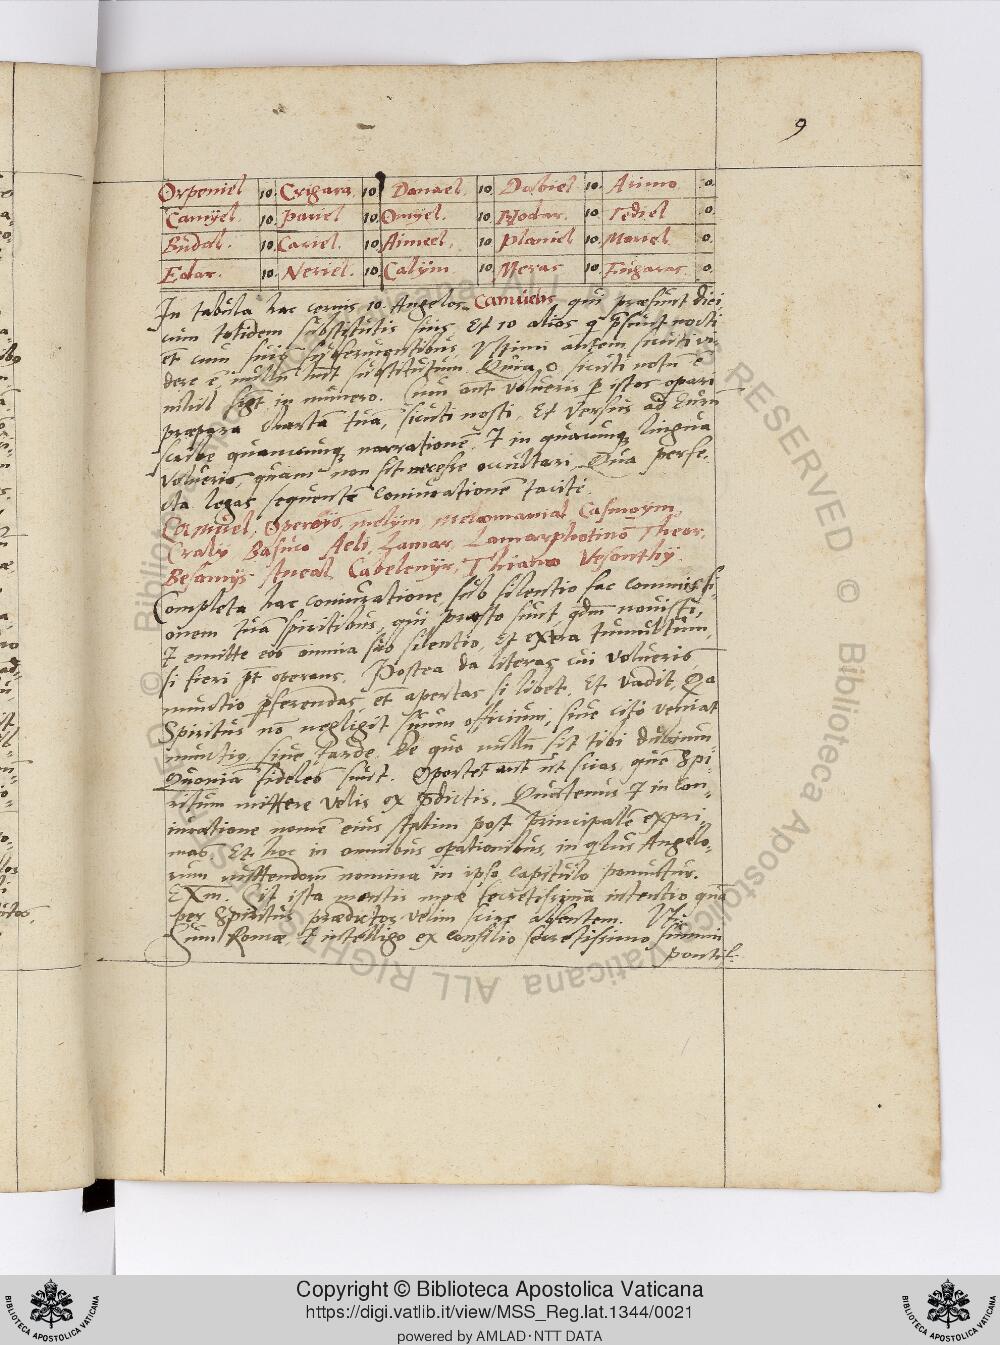 9
Orpeniel 10. Cxigara 10 Danael. 10 Dabiel 10. Asimo 0.
Camÿel. 10. Pariel 10. Omÿel. 10 Nodar. 10. Tediel 0.
Budal. 10. Cariel. 10. Aimeel. 10 Planiel 10. Mariel 0.
Edar. 10. Neriel. 10. Calÿm 10 Meras 10. Fugaras 0.
In tabula hac cernis 10. Angelos Camuelis qui præsunt diei
cum totidem substitutis suis, Et 10 alios q̃ p̃sunt nocti
et cum suis subseruientibus. Vltimi autem sicuti vi-
dere ẽ nullũ hñt substitutum. Quia 0 sicuti notũ ẽ
nihil figt in numero. Cum aũt volueris p istos opari
præpara chartã tuã, sicuti nosti, Et versus ad Eurũ
scribe quamcunq narrationẽ, & in quacunq lingua
volueris, quam non sit necesse occultari, Qua perfe-
cta legas sequentẽ coniurationem tacitè.
Camuel, Operoÿs, melÿm melomanial Casmoyin,
Cralÿ Basuco Aeli, Lamar, Lamarphotino Theor,
Besamÿs Aneal Cabelonÿr, Thiamo Vesonthÿ.
Completa hac coniuratione sub silentio fac commissi-
onem tuã spiritibus, qui præsto sunt, qdm nouisti,
& emitte eos omnia sub silentio, Et extra tumultum,
si fieri pt̃ operans. Postea da literas cui volueris
nunctio pferendas, et apertas si libet, Et vadit, Qa
Spiritus nõ negligit suum officium, siue citò veniat
nunctiꝰ, siue tarde. De quo nullũ sit tibi dubium
Quoniã fideles sunt. Oportet aũt ut scias, quẽ Spi-
ritum mittere velis ex p̃dictis. Quatenus & in con-
iuratione nomẽ eius statim post principalẽ expri-
mas, Et hoc in omnibus opationibus, in qbus Angelo-
rum mittendorũ nomina in ipso capitulo ponuntur.
EXm. Sit ista mentis meæ secretissima intentio quã
per Spiritus prædictos velim scire absentem. Vti
Sum Romæ, & intelligo ex consilio secretissimo summi
pontif.
Copyright © Biblioteca Apostolica Vaticana
https://digi.vatlib.it/view/MSS_Reg.lat.1344/0021
powered by AMLAD·NTT DATA